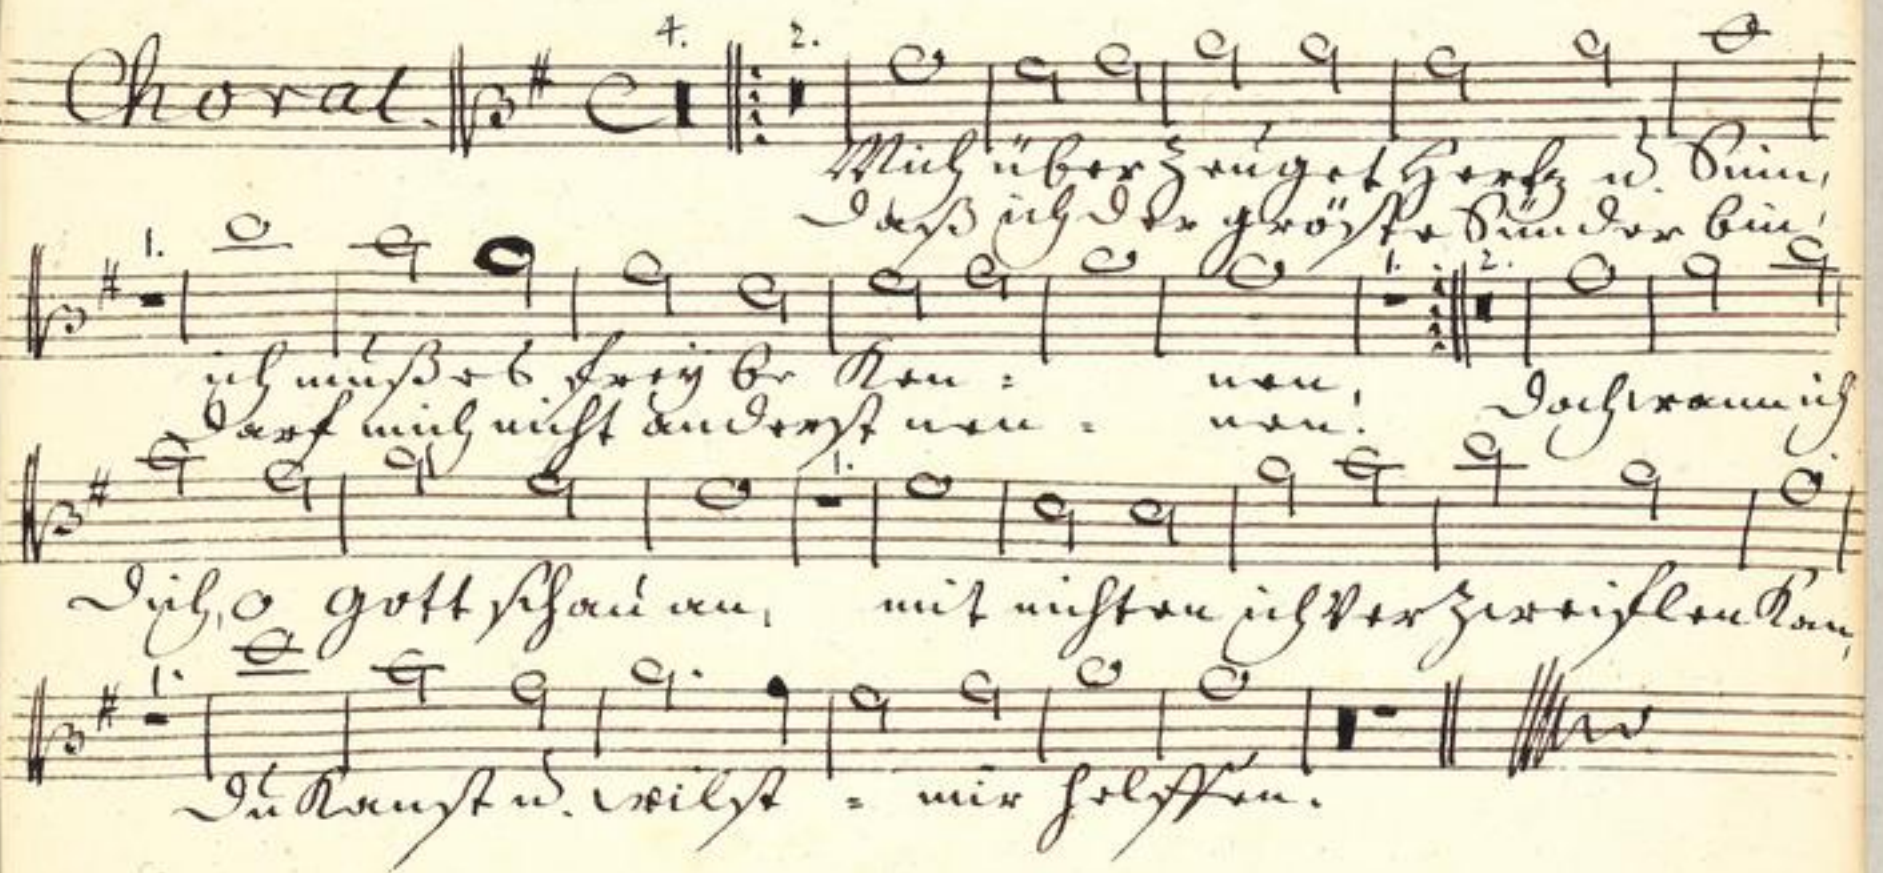 Choral.
4. 2.
Mich über Zeuget Hertz u. Sinn,
Daß ich der gröste Sünder bin!
1. 1. 2.
ich muß es frey be Ken = nen, Doch wann ich
Darf mich nicht anderst nen = nen!
1.
Dich, o gott schau an, mit nichten ich Ver Zweiflen Kan,
1.
Du Kanst u. wilst = mir helffen.